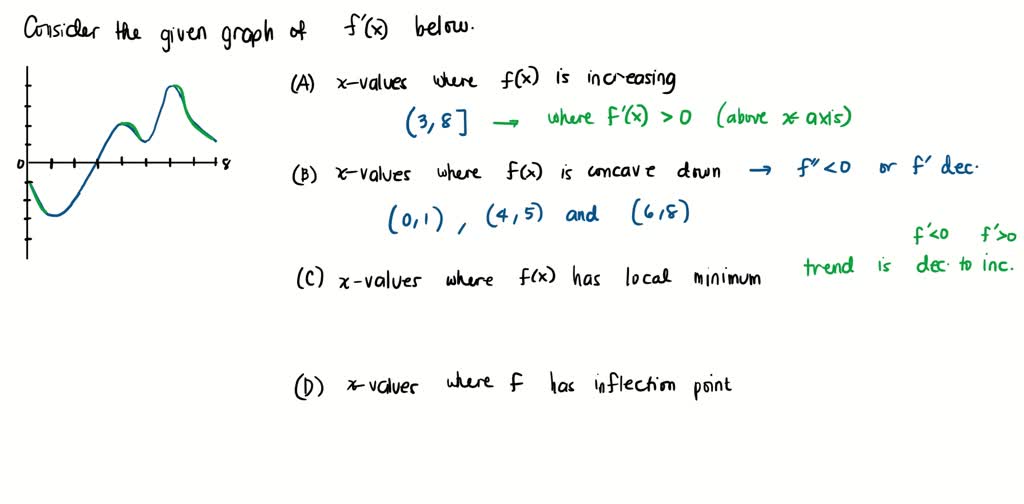 Consider the given graph of f'(x) below.
(A) x-values where f(x) is increasing
(3,8] → where f'(x) > 0 (above x-axis)
0
8
(B) x-values where f(x) is concave down → f'' < 0 or f' dec.
(0,1), (4,5) and (6,8)
f'<0 f'>0
(C) x-values where f(x) has local minimum trend is dec. to inc.
(D) x-values where f has inflection point